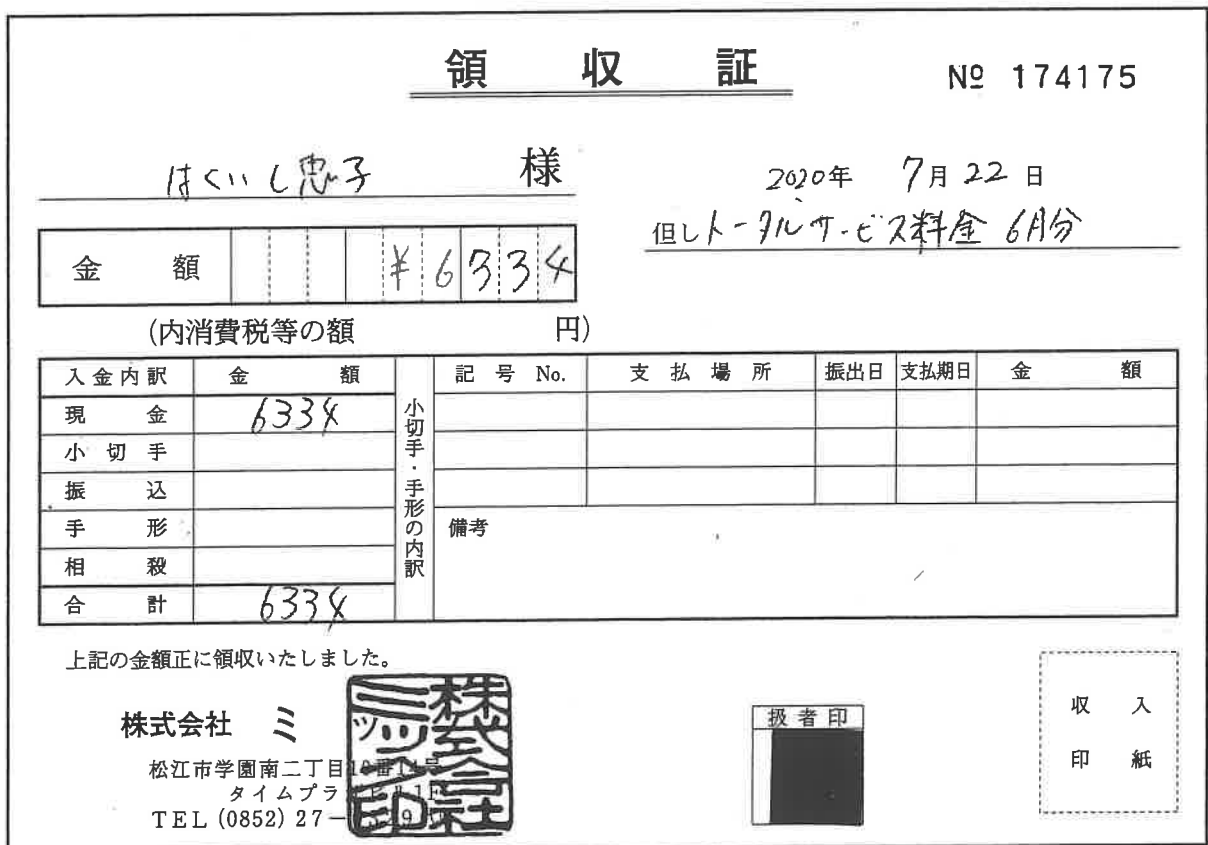 領収証
№ 174175
はくいし恵子 様
2020年 7月 22日
但し トータルサービス料金 6月分
金額 ¥6334
(内消費税等の額 円)
入金内訳 金額
現金 6334
小切手
振込
手形
相殺
合計 6334
小切手・手形の内訳
記号No. 支払場所 振出日 支払期日 金額
備考
上記の金額正に領収いたしました。
株式会社 ミ
松江市学園南二丁目
タイムプラ
TEL (0852) 27-
扱者印
収入
印紙